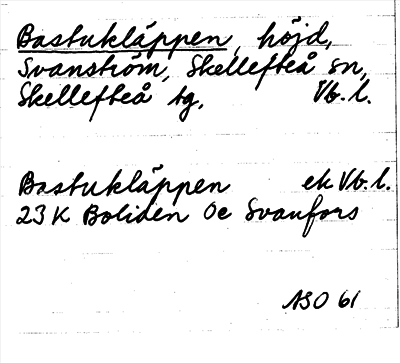 Bastukläppen, höjd,
Svanström, Skellefteå sn,
Skellefteå tg, Vb. l.
Bastukläppen ek Vb. l.
23 K Boliden Oc Svanfors
ASO 61